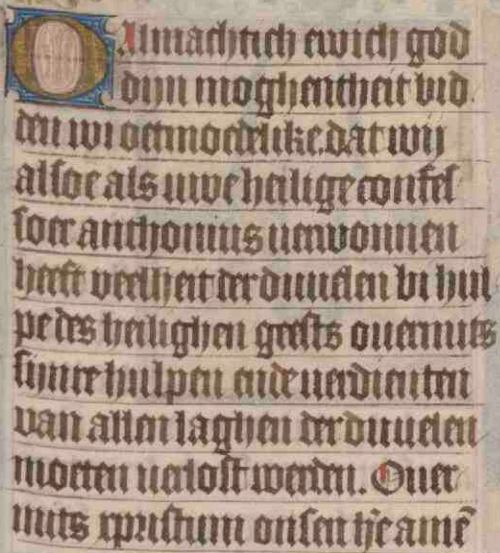 O Almachtich ewich god
dijn moghentheit bid
den wi oetmoedelike. dat wij
alsoe als uwe heilige confes
soer anthonius uerwonnen
heeft veelheit der duuelen bi hul
pe des heilighen geests ouermits
sijnre hulpen ende uerdiensten
van allen laghen der duuelen
moeten uerlost werden. Ouer
mits xpristum onsen he͛e amē